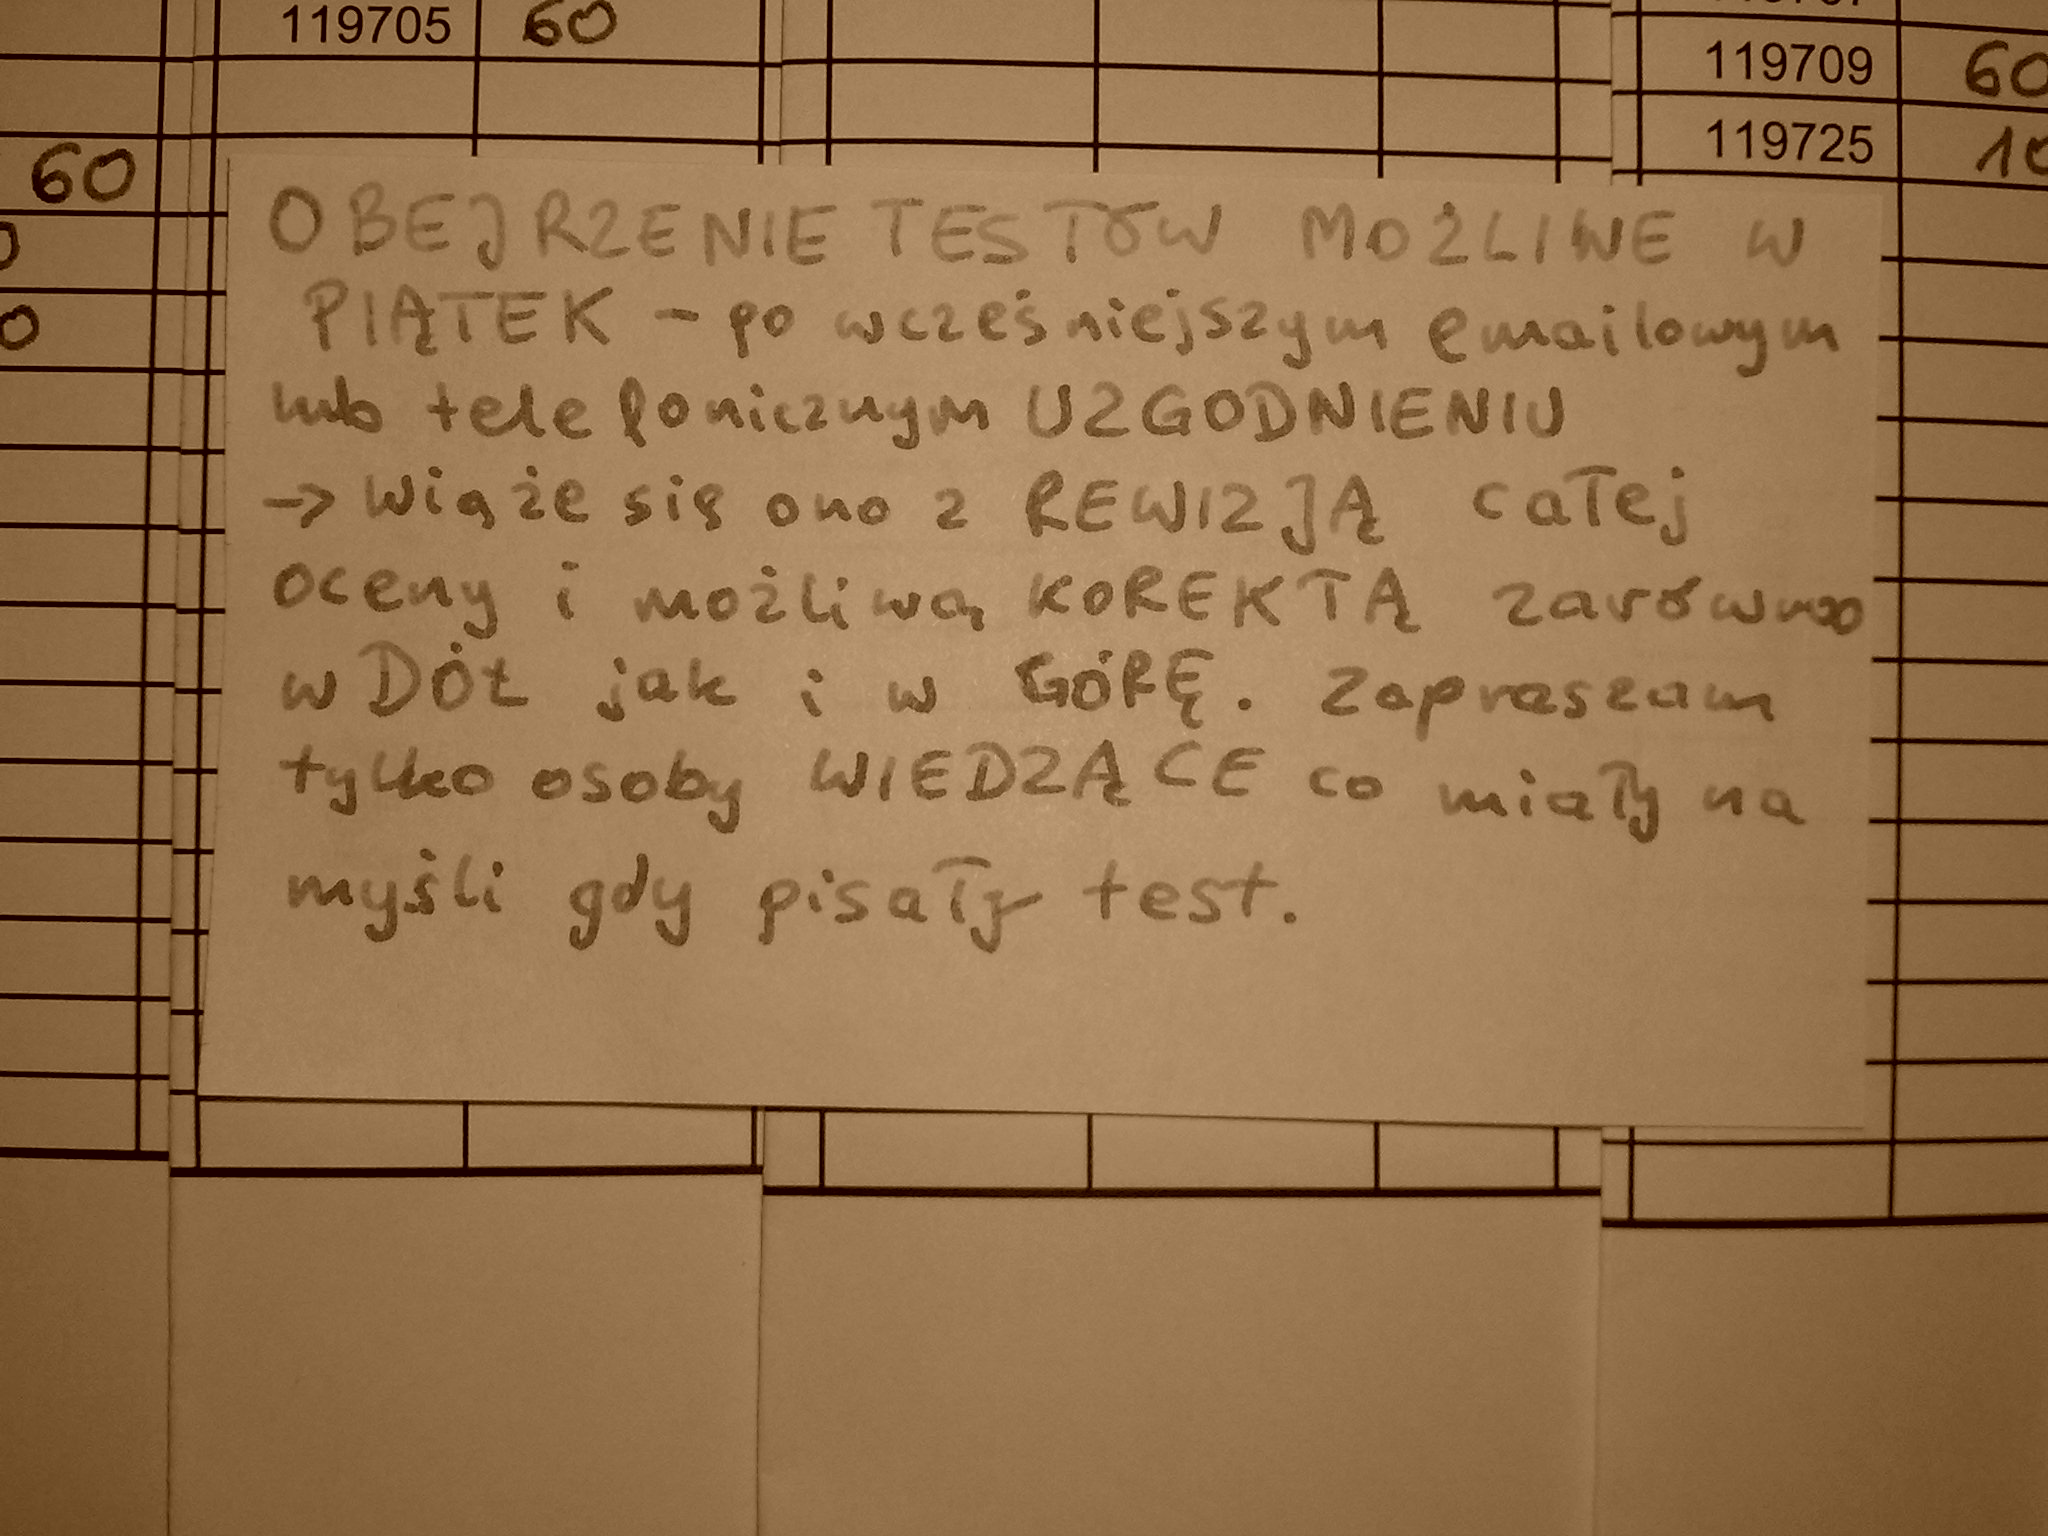 119705 60
119709 60
119725
60
OBEJRZENIE TESTÓW MOŻLIWE W
PIĄTEK - po wcześniejszym emailowym
lub telefonicznym UZGODNIENIU
→ Wiąże się ono z REWIZJĄ całej
oceny i możliwą KOREKTĄ zarówno
w DÓŁ jak i w GÓRĘ. Zapraszam
tylko osoby WIEDZĄCE co miały na
myśli gdy pisały test.